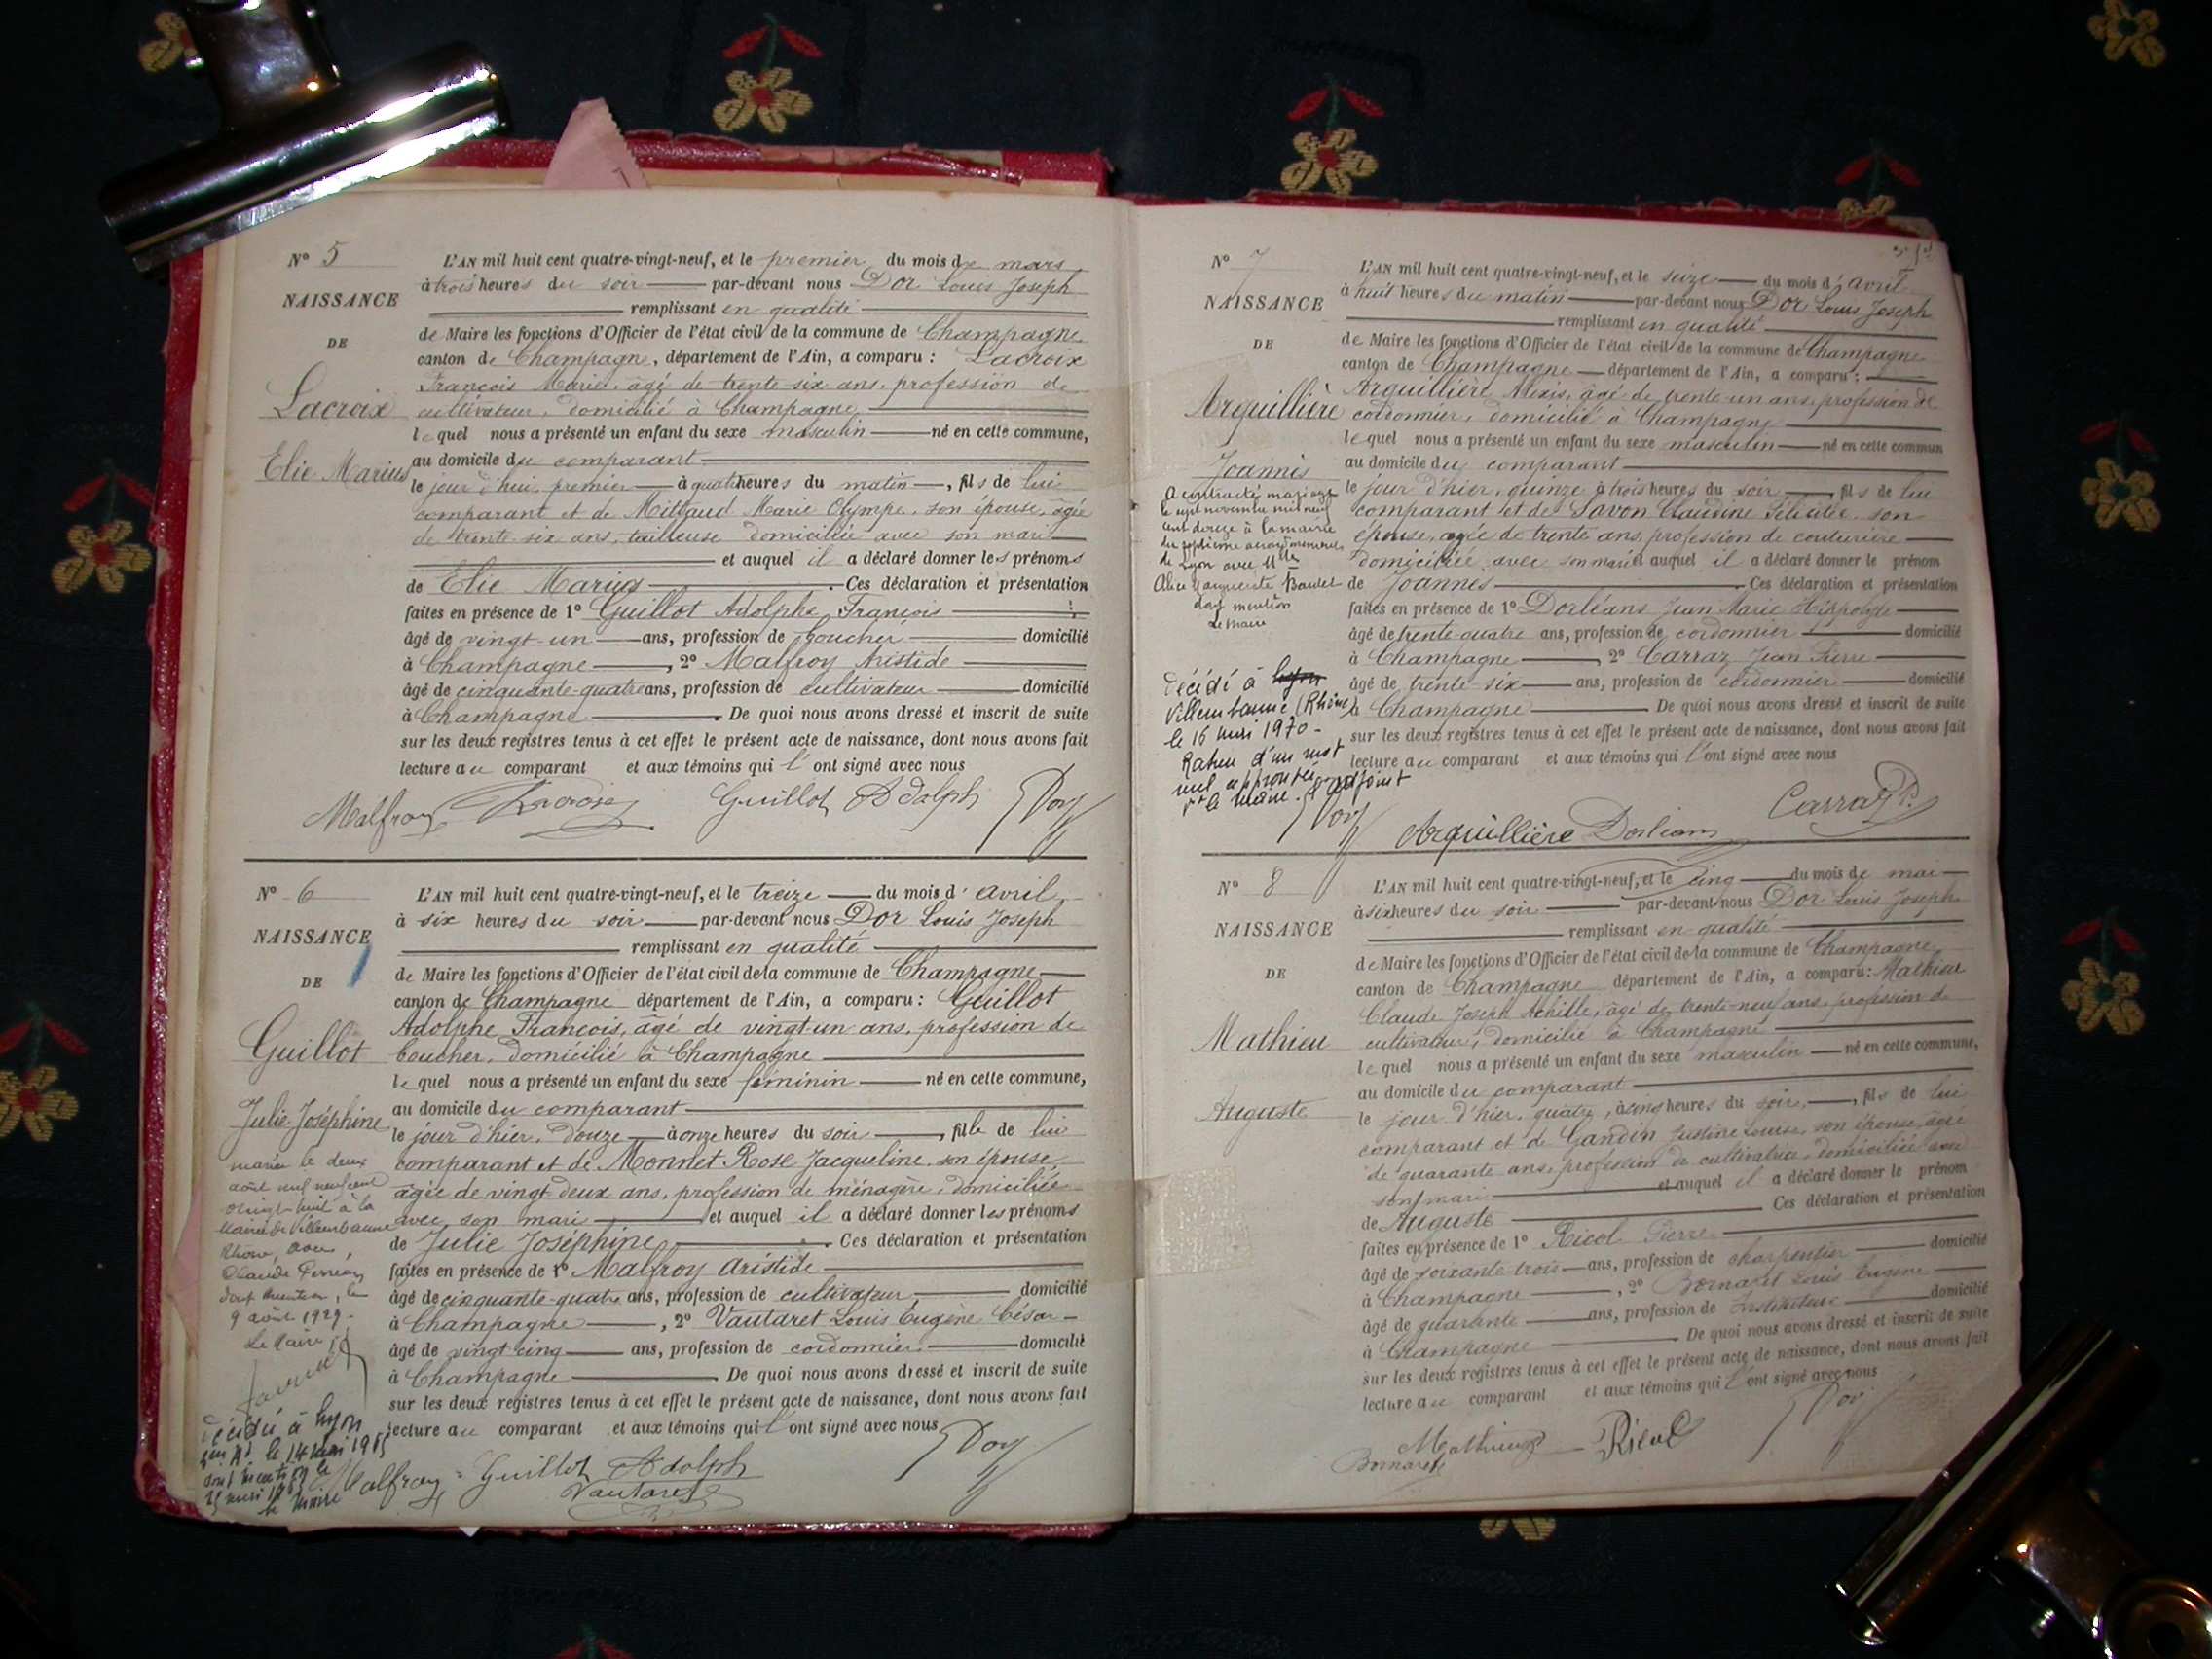 N° 5
NAISSANCE
DE
Lacroix
Elie Marius
L'AN mil huit cent quatre-vingt-neuf, et le premier du mois de mars
à trois heures du soir par-devant nous Dor Louis Joseph
remplissant en qualité
de Maire les fonctions d'Officier de l'état civil de la commune de Champagne
canton de Champagne, département de l'Ain, a comparu : Lacroix
François Marie, âgé de trente-six ans, profession de
cultivateur, domicilié à Champagne
lequel nous a présenté un enfant du sexe masculin né en cette commune,
au domicile du comparant
le jour d'hui, premier à quatre heures du matin, fils de lui
comparant et de Millaud Marie Olympe, son épouse, âgée
de trente six ans, tailleuse domiciliée avec son mari
et auquel il a déclaré donner les prénoms
de Elie Marius. Ces déclaration et présentation
faites en présence de 1° Guillot Adolphe François
âgé de vingt-un ans, profession de boucher domicilié
à Champagne, 2° Malfroy Aristide
âgé de cinquante-quatre ans, profession de cultivateur domicilié
à Champagne. De quoi nous avons dressé et inscrit de suite
sur les deux registres tenus à cet effet le présent acte de naissance, dont nous avons fait
lecture au comparant et aux témoins qui l'ont signé avec nous
Malfroy Lacroix Guillot Adolph Dor
N° 6
NAISSANCE
DE
Guillot
Julie Joséphine
mariée le deux
août mil neuf cent
vingt-huit à la
Mairie de Villeurbanne
Rhône, avec
Claude
dont mention, le
9 août 1929.
Le Maire
Décédée à Lyon
le 14 mai 1985
le Maire
L'AN mil huit cent quatre-vingt-neuf, et le treize du mois d'avril
à six heures du soir par-devant nous Dor Louis Joseph
remplissant en qualité
de Maire les fonctions d'Officier de l'état civil de la commune de Champagne
canton de Champagne département de l'Ain, a comparu : Guillot
Adolphe François, âgé de vingt-un ans, profession de
boucher, domicilié à Champagne
lequel nous a présenté un enfant du sexe féminin né en cette commune,
au domicile du comparant
le jour d'hier, douze à onze heures du soir, fille de lui
comparant et de Monnet Rose Jacqueline, son épouse
âgée de vingt deux ans, profession de ménagère, domiciliée
avec son mari et auquel il a déclaré donner les prénoms
de Julie Joséphine. Ces déclaration et présentation
faites en présence de 1° Malfroy Aristide
âgé de cinquante-quatre ans, profession de cultivateur domicilié
à Champagne, 2° Vautaret Louis Eugène César
âgé de vingt cinq ans, profession de cordonnier domicilié
à Champagne. De quoi nous avons dressé et inscrit de suite
sur les deux registres tenus à cet effet le présent acte de naissance, dont nous avons fait
lecture au comparant et aux témoins qui l'ont signé avec nous
Malfroy Guillot Adolph Dor
Vautaret
N° 7
NAISSANCE
DE
Arguillière
Joannès
A contracté mariage
le sept novembre mil neuf
cent douze à la mairie
du septième arrondissement
de Lyon avec Mlle
Alice Marguerite Baudet
dont mention
Le Maire
Décédé à Lyon
Villeurbanne (Rhône)
le 16 mai 1970
Rature d'un mot
nul approuvée
Le Maire adjoint
L'AN mil huit cent quatre-vingt-neuf, et le seize du mois d'avril
à huit heures du matin par-devant nous Dor Louis Joseph
remplissant en qualité
de Maire les fonctions d'Officier de l'état civil de la commune de Champagne
canton de Champagne département de l'Ain, a comparu :
Arguillière Alexis, âgé de trente-un ans, profession de
cordonnier, domicilié à Champagne
lequel nous a présenté un enfant du sexe masculin né en cette commun
au domicile du comparant
le jour d'hier, quinze à trois heures du soir, fils de lui
comparant et de Savon Claudine Félicitée, son
épouse, agée de trente ans, profession de couturière
domiciliée avec son mari et auquel il a déclaré donner le prénom
de Joannès. Ces déclaration et présentation
faites en présence de 1° Dorléans Jean Marie Hippolyte
âgé de trente-quatre ans, profession de cordonnier domicilié
à Champagne, 2° Carraz Jean Pierre
âgé de trente-six ans, profession de cordonnier domicilié
à Champagne. De quoi nous avons dressé et inscrit de suite
sur les deux registres tenus à cet effet le présent acte de naissance, dont nous avons fait
lecture au comparant et aux témoins qui l'ont signé avec nous
Dor Arguillière Dorléans Carraz P.
N° 8
NAISSANCE
DE
Mathieu
Auguste
L'AN mil huit cent quatre-vingt-neuf, et le cinq du mois de mai
à six heures du soir par-devant nous Dor Louis Joseph
remplissant en qualité
de Maire les fonctions d'Officier de l'état civil de la commune de Champagne
canton de Champagne département de l'Ain, a comparu : Mathieu
Claude Joseph Achille, âgé de trente-neuf ans, profession de
cultivateur, domicilié à Champagne
lequel nous a présenté un enfant du sexe masculin né en cette commune,
au domicile du comparant
le jour d'hier, quatre, à cinq heures du soir, fils de lui
comparant et de Gandin Justine Louise, son épouse, âgée
de quarante ans, profession de cultivatrice, domiciliée avec
son mari et auquel il a déclaré donner le prénom
de Auguste Ces déclaration et présentation
faites en présence de 1° Ricol Pierre
âgé de soixante-trois ans, profession de charpentier domicilié
à Champagne, 2° Bornaret Louis Eugène
âgé de quarante ans, profession de Instituteur domicilié
à Champagne. De quoi nous avons dressé et inscrit de suite
sur les deux registres tenus à cet effet le présent acte de naissance, dont nous avons fait
lecture au comparant et aux témoins qui l'ont signé avec nous
Mathieu Ricol Dor
Bornaret